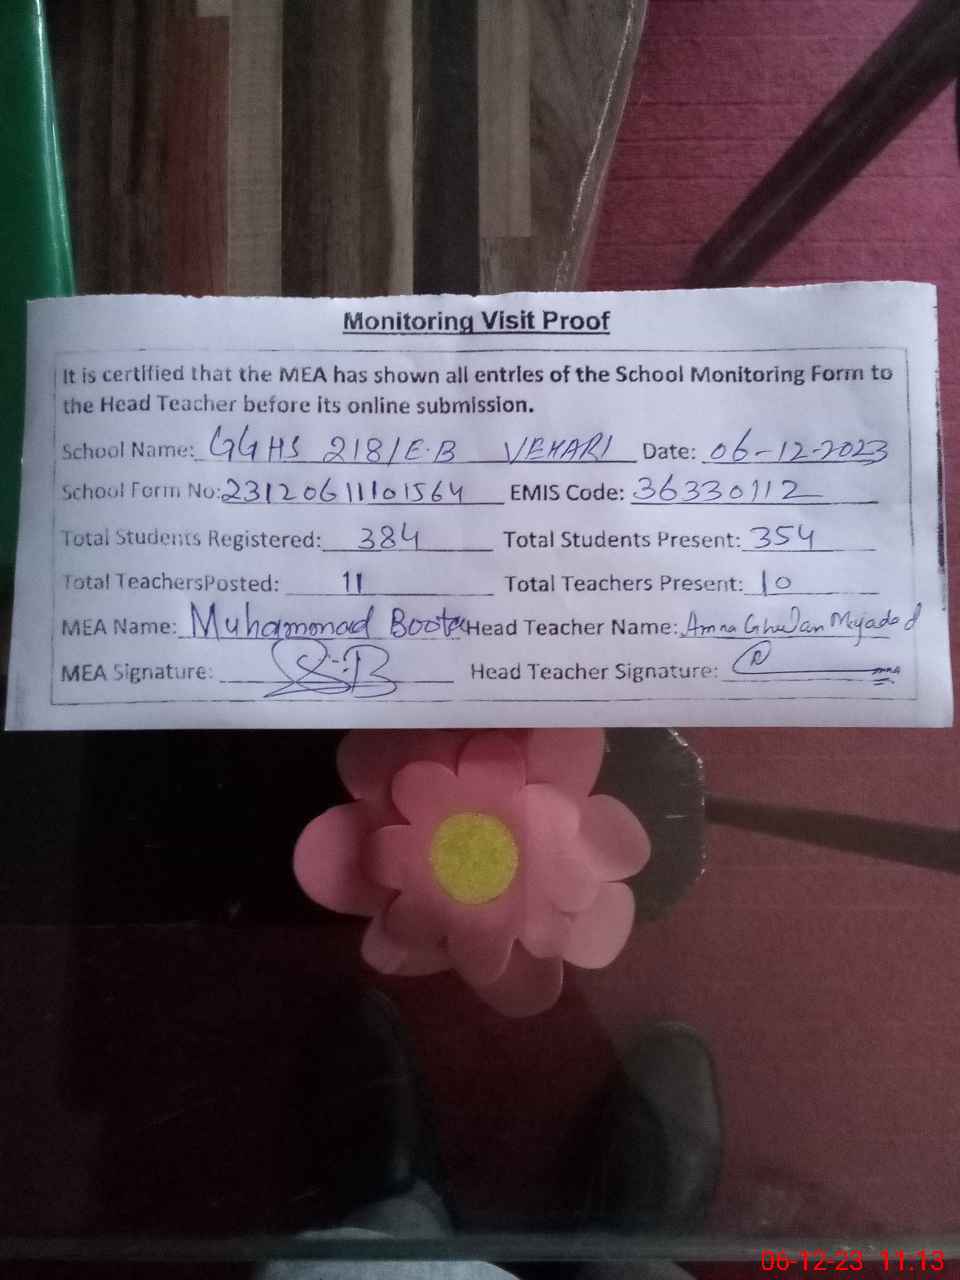 Monitoring Visit Proof
It is certified that the MEA has shown all entries of the School Monitoring Form to
the Head Teacher before its online submission.
School Name: GGHS 218/E.B VEHARI Date: 06-12-2023
School Form No: 23120611101564 EMIS Code: 36330112
Total Students Registered: 384 Total Students Present: 354
Total TeachersPosted: 11 Total Teachers Present: 10
MEA Name: Muhammad Boota Head Teacher Name: Amna
MEA Signature: Head Teacher Signature:
06-12-23 11:13